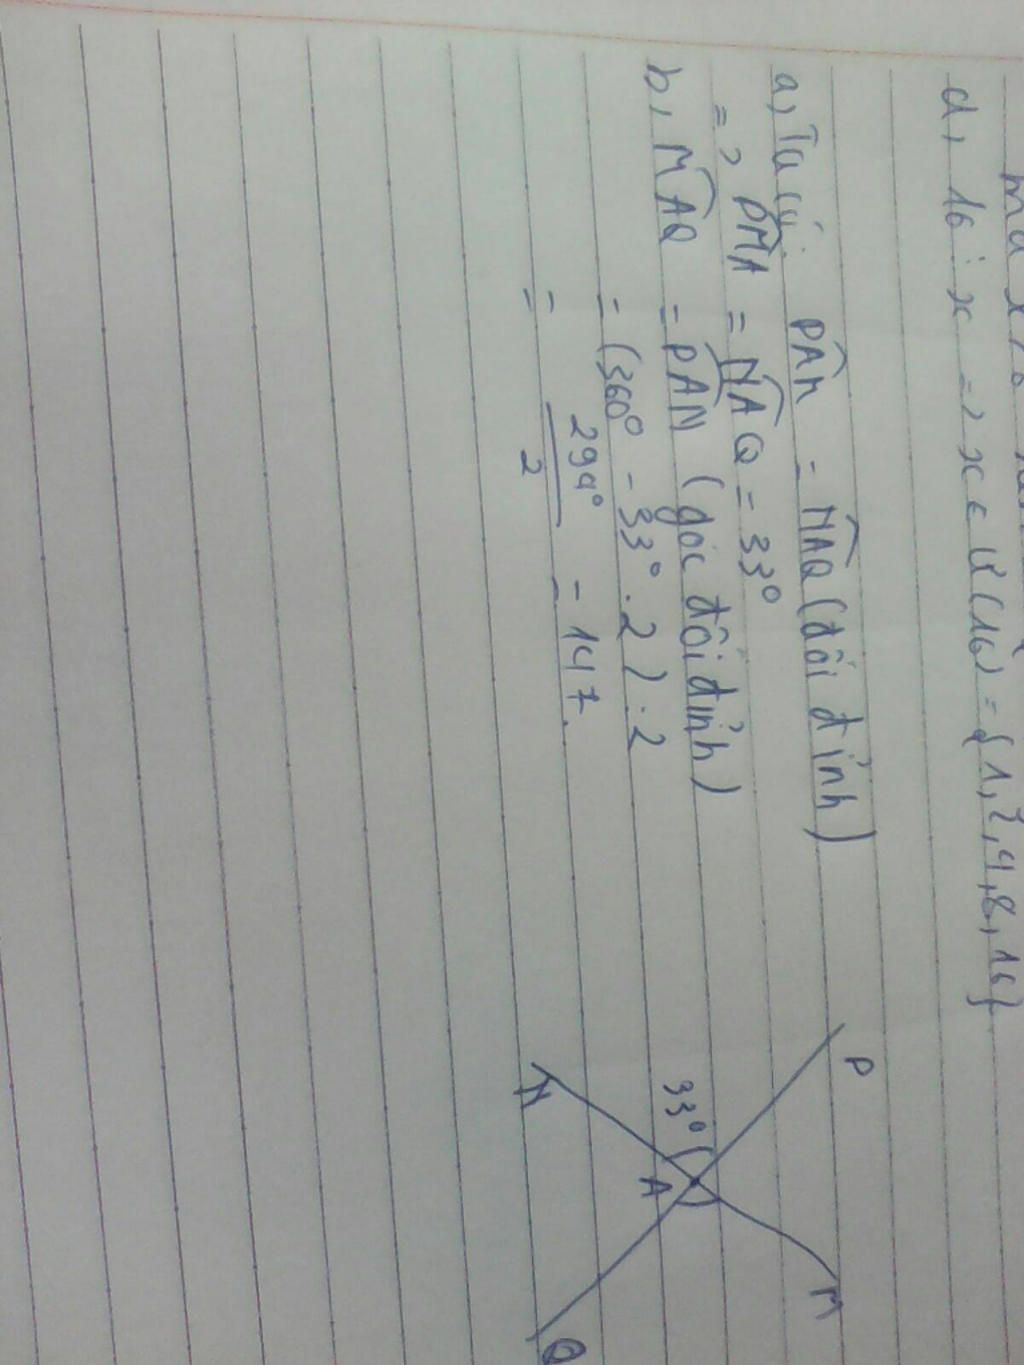 d, 16 ⋮ x => x ∈ Ư(16) = {1,2,4,8,16}
a, Ta có: PÂM = NAQ (đối đỉnh)
=> PMA = NAQ = 33°
b, MAQ = PAN (góc đối đỉnh)
= (360° - 33° . 2) : 2
= 294° / 2 = 147.
P
M
33°
A
N
Q